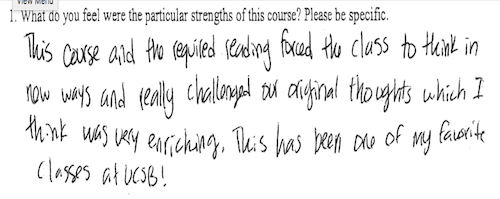 View Menu
1. What do you feel were the particular strengths of this course? Please be specific.
This course and the required reading forced the class to think in
new ways and really challenged our original thoughts which I
think was very enriching. This has been one of my favorite
classes at UCSB!